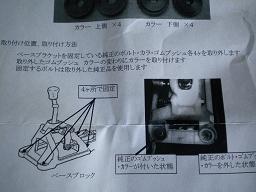 カラー 上側 ×4
カラー 下側 ×4
取り付け位置、取り付け方法
ベースブラケットを固定している純正のボルト・カラ・ゴムブッシュ各4ケを取り外します
取り外したゴムブッシュ カラーの変わりにカラーを取り付けます
固定するボルトは取り外した純正品を使用します
4ヶ所で固定
ベースブロック
純正のゴムブッシュ
・カラーが付いた状態
純正のボルト・ゴムブッシュ
・カラーを外した状態